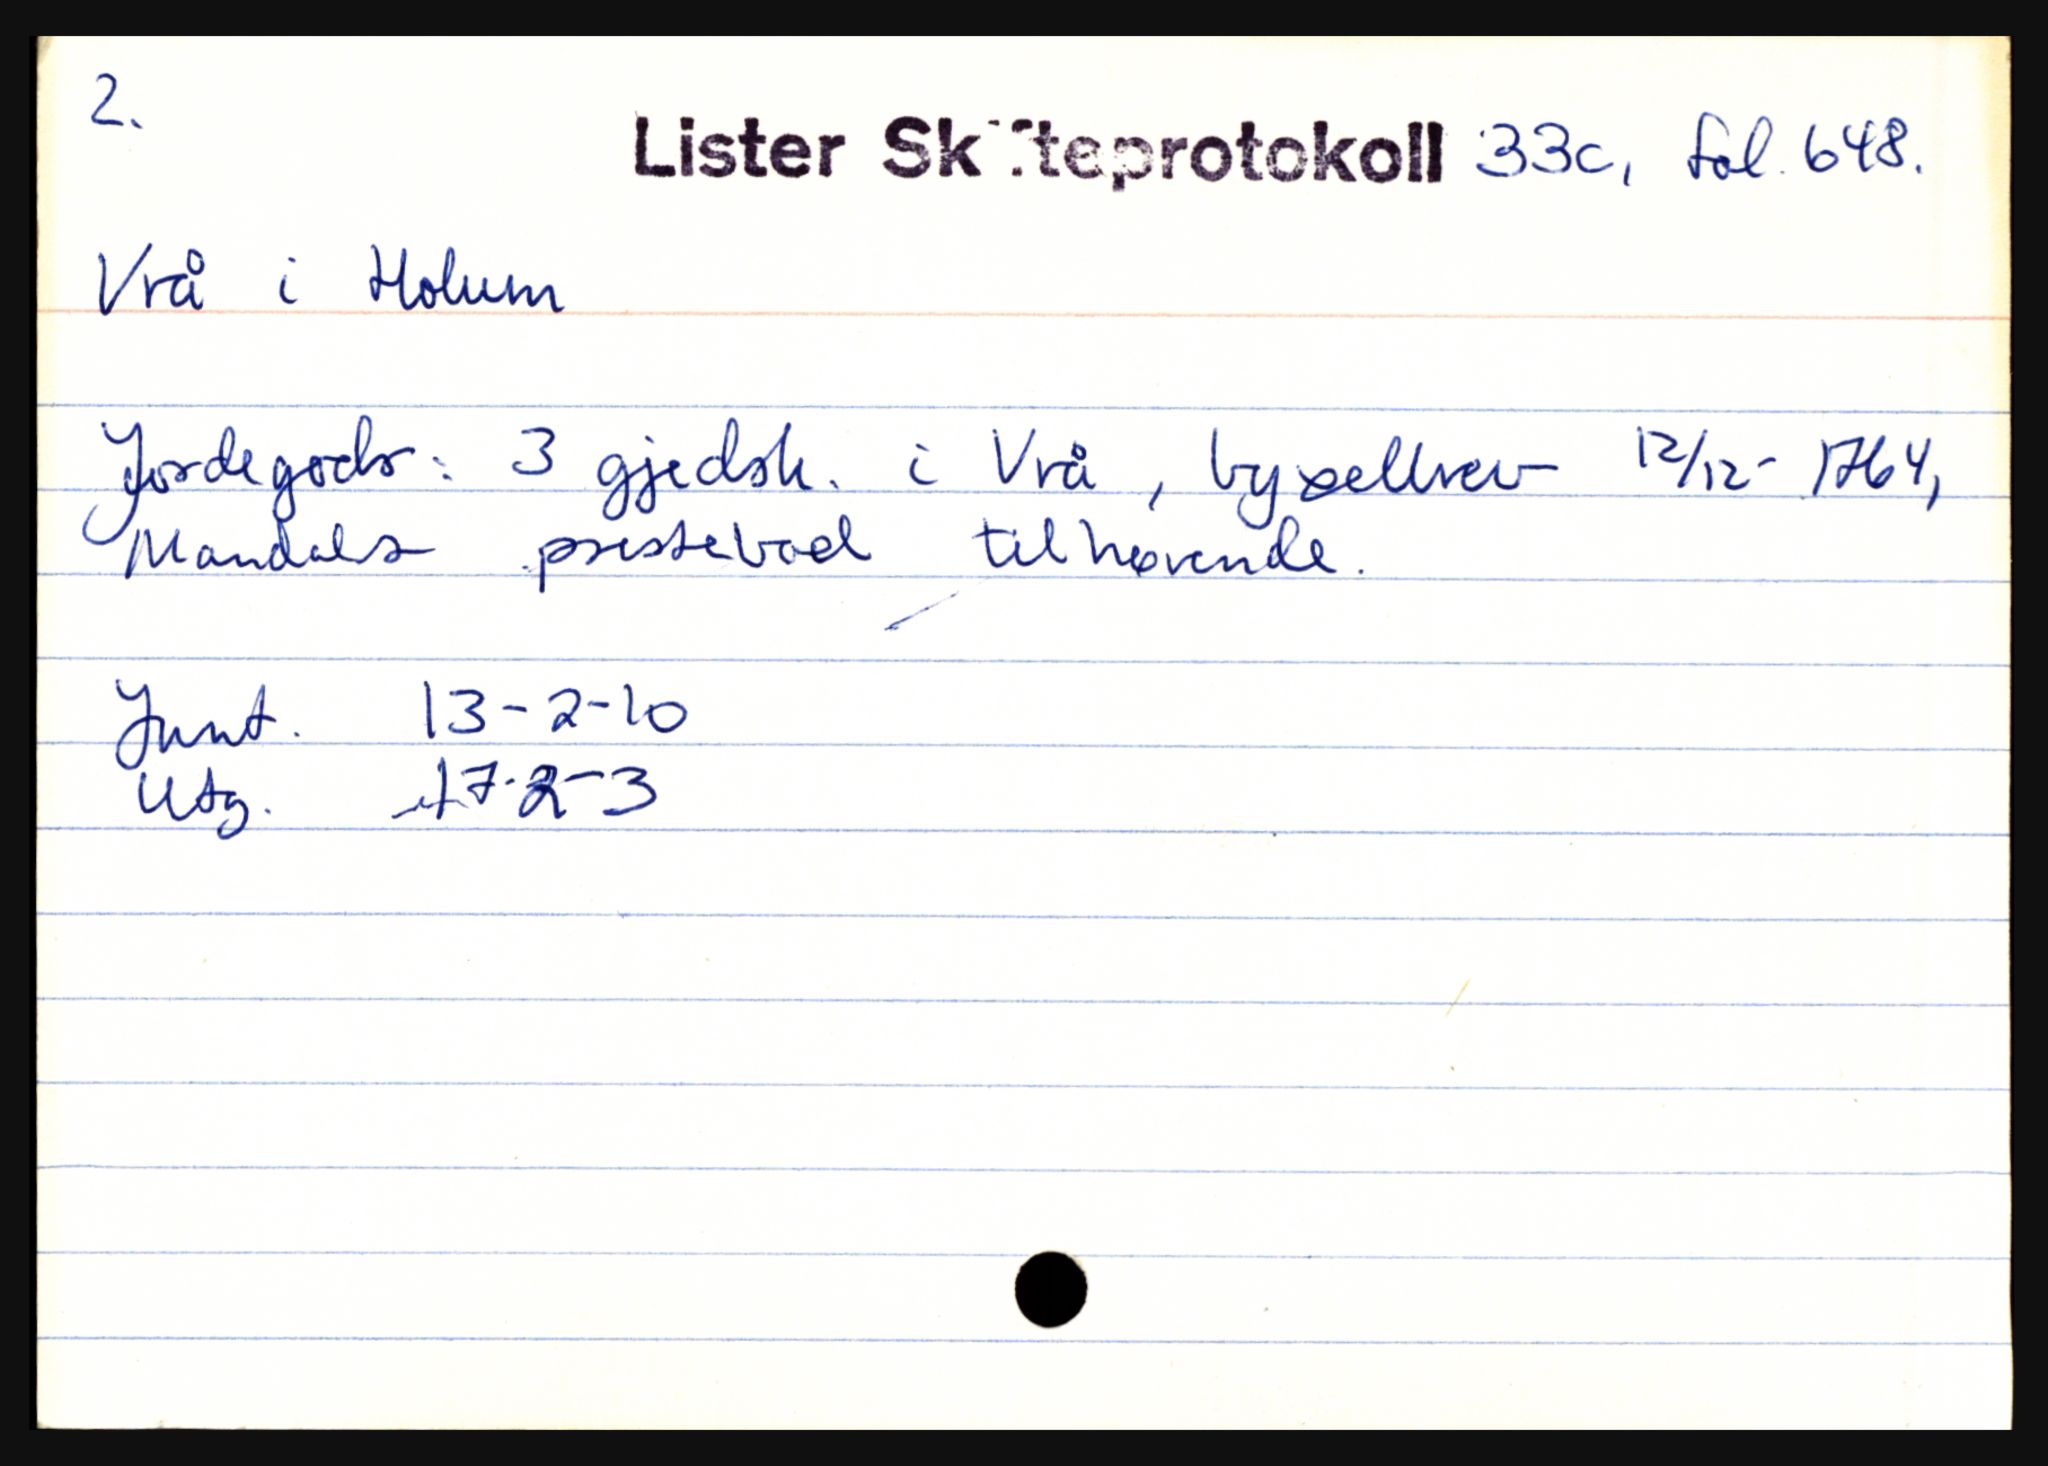 2.
Lister Skifteprotokoll 33c, fol. 648.
Vrå i Holum
Jordegods: 3 gjedsk. i Vrå, byxelbrev 12/12 - 1764,
Mandals prestebod tilhørende.
Innt. 13-2-10
Utg. 17-2-3